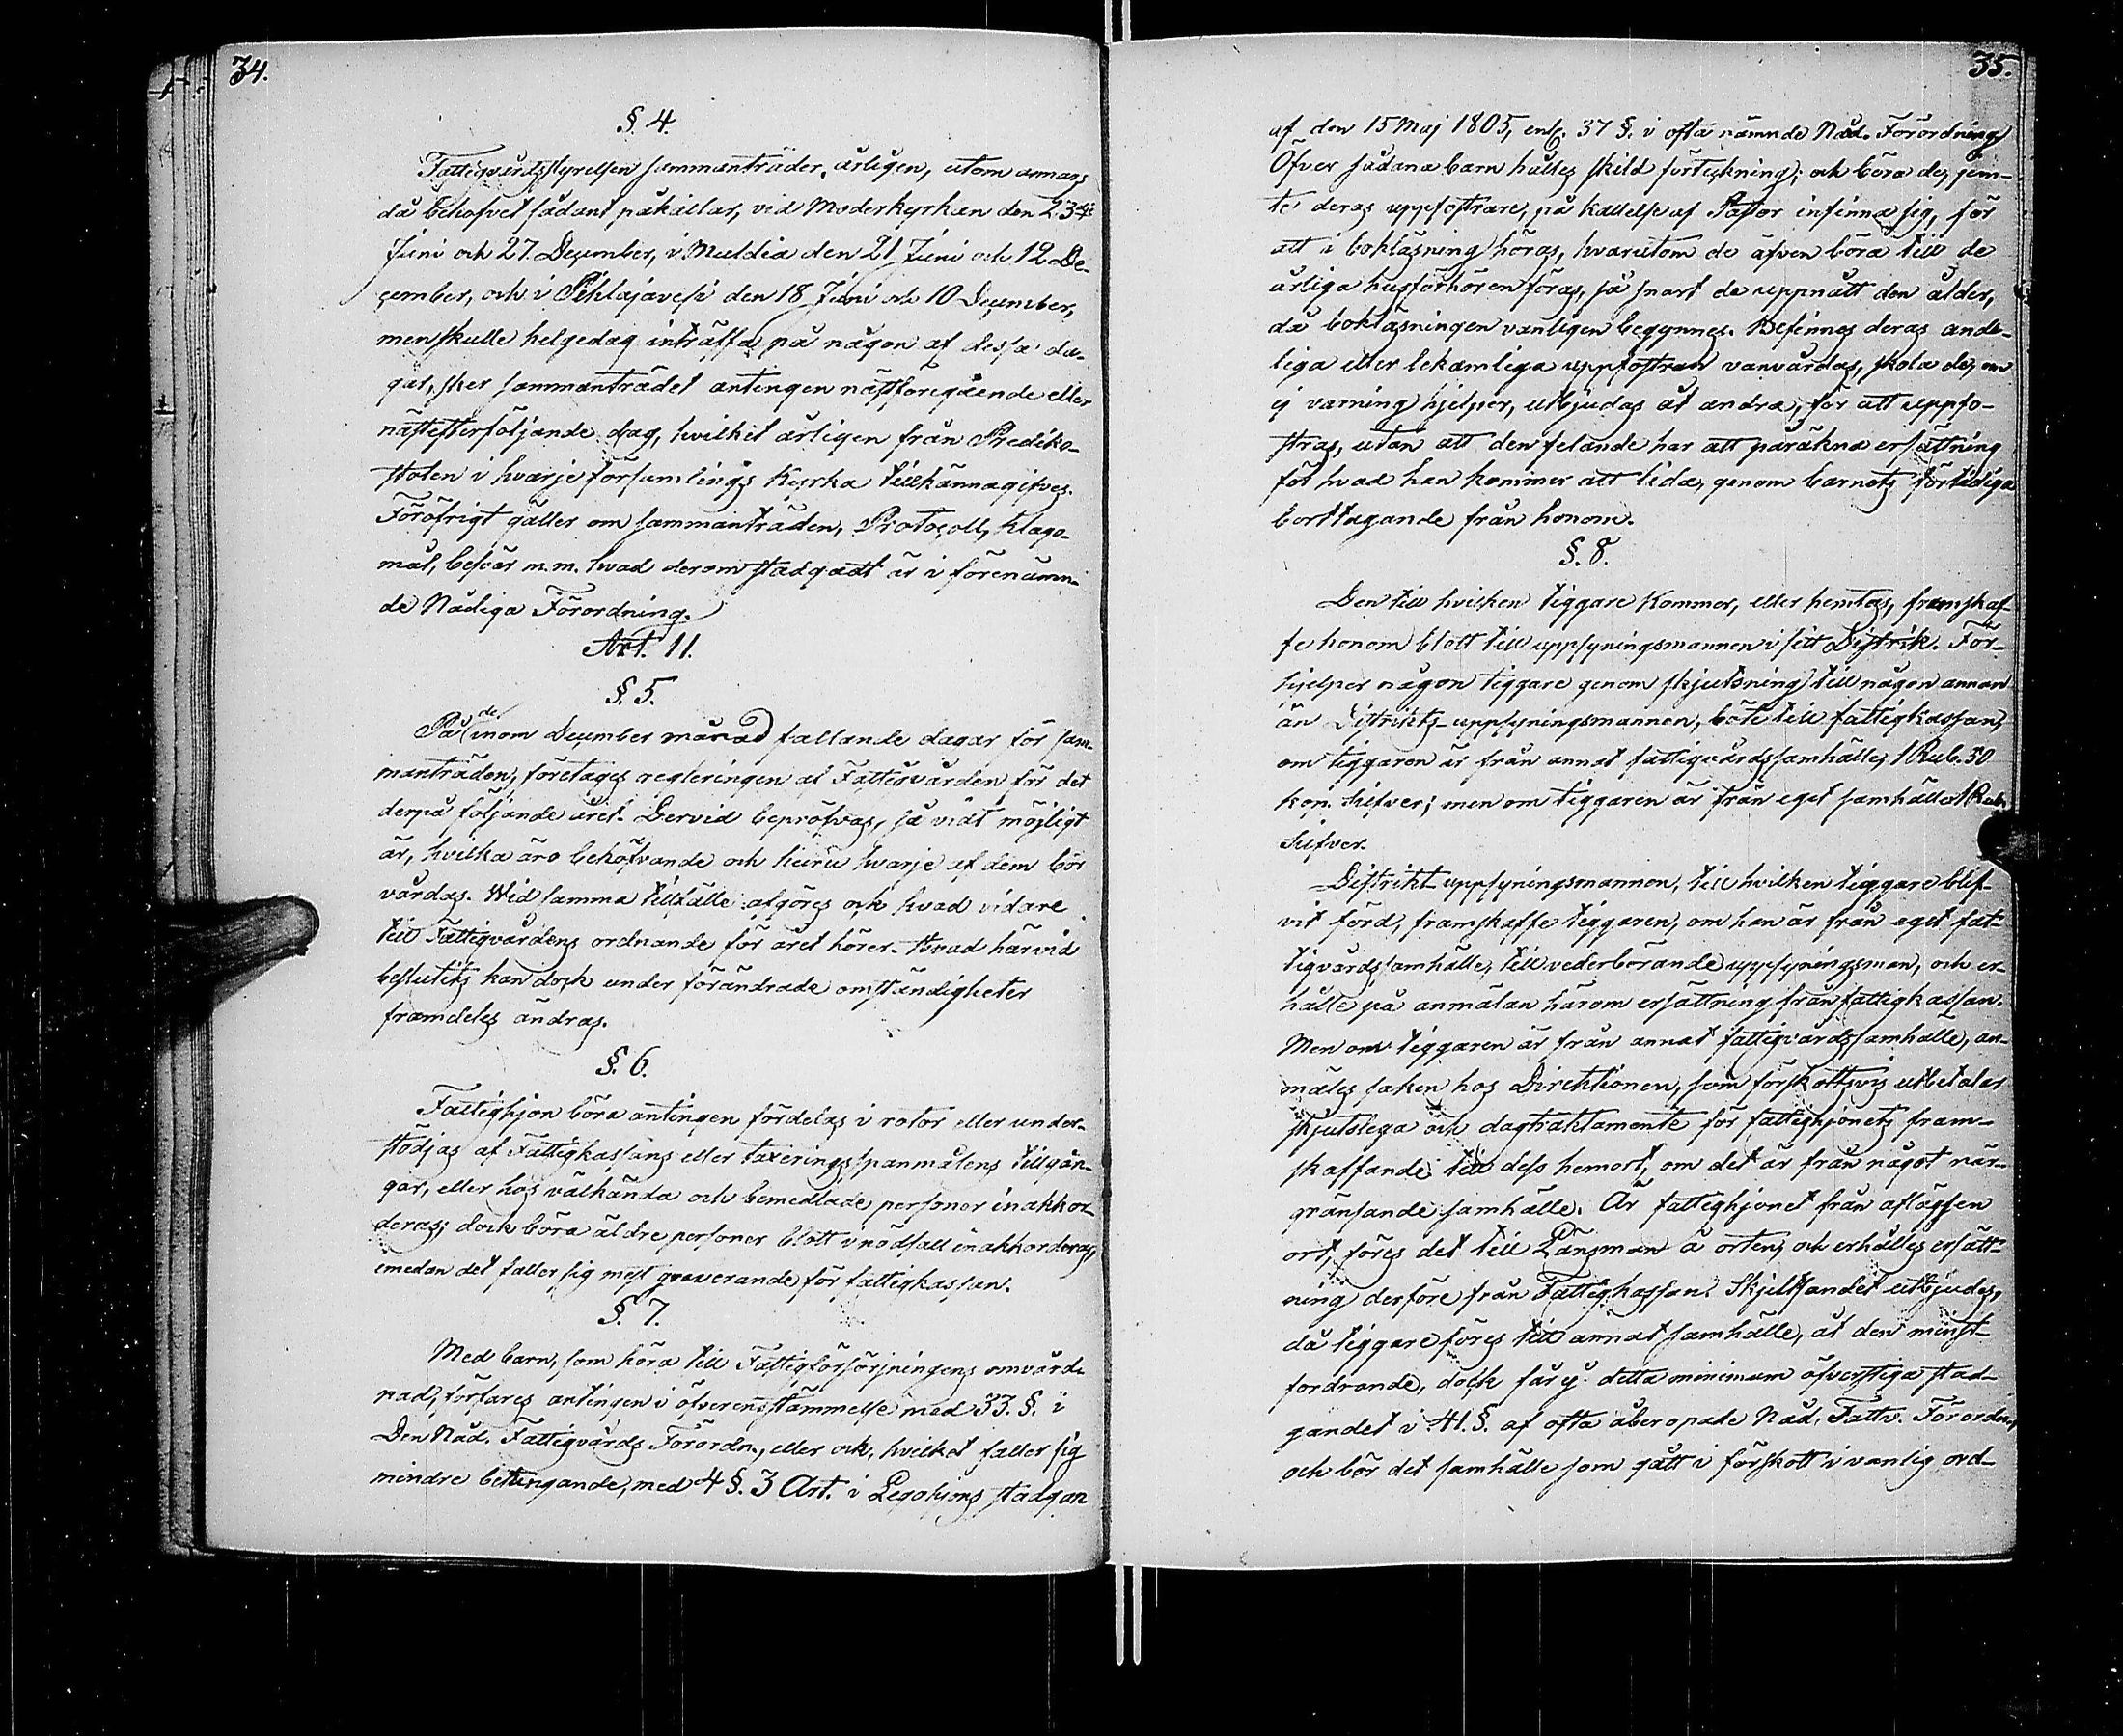 34.
§. 4.
Fattigvårdsstyrelsen sammanträder, årligen, utom annars
då behofvet sådant påkallar, vid Moderkyrkan den 23dje
Juni och 27. December, i Multia den 21 Juni och 12 De-
cember, och i Pihlajavesi den 18 Juni och 10 December,
men skulle helgedag inträffa på någon af dessa da-
gar, sker sammanträdet antingen nästföregående eller
nästefterföljande dag, hvilket årligen från Predik-
stolen i hvarje församlings Kyrka tillkännagifves.
Föröfrigt gäller om sammanträden, Protocoll, klago-
mål, besvär m.m. hvad derom stadgadt är i förenämn-
de Nådiga Förordning.
Art. 11.
§. 5.
På de inom December månad fallande dagar för sam-
manträden, företages regleringen af Fattigvården för det
derpå följande året. Dervid bepröfvas, så vidt möjligt
är, hvilka äro behöfvande och huru hvarje af dem bör
vårdas. Wid samma tillfälle afgöres och hvad vidare
till Fattigvårdens ordnande för året hörer. Hvad härvid
beslutits kan dock under förändrade omständigheter
framdeles ändras.
§. 6.
Fattighjon böra antingen fördelas i rotor eller under-
stödjas af Fattigkassans eller taxeringsspanmålens tillgån-
gar, eller hos välkända och bemedlade personer inackor-
deras; dock böra äldre personer blott i nödfall inackorderas,
emedan det faller sig mest graverande för fattigkassan.
§. 7.
Med barn, som höra till Fattigförsörjningens omvård-
nad, förfares antingen i öfverensstämmelse med 33. §. i
Den Nåd. Fattigvårds Förordn., eller och, hvilket faller sig
mindre betungande, med 4 §. 3 Art. i Legohjons stadgan
35.
af den 15 Maj 1805, enl. 37 §. i ofta nämnde Nåd. Förordning
Öfver sådana barn hålles skild förteckning; och böra de, jem-
te deras uppfostrare, på kallelse af Pastor infinna sig, för
att i bokläsning höras, hvarutom de äfven böra till de
årliga husförhören föras, så snart de uppnått den ålder,
då bokläsningen vanligen begynnes. Befinnes deras ande-
liga eller lekamliga uppfostran vanvårdas, skola de, om
ej varning hjelper, utbjudas åt andra, för att uppfo-
stras, utan att den felande har att påräkna ersättning
för hvad han kommer att lida, genom barnets förtidiga
borttagande från honom.
§. 8.
Den till hvilken tiggare kommer, eller hemtas, framskaf-
fe honom blott till uppsyningsmannen i sitt Distrik. För-
hjelper någon tiggare genom skjutsning till någon annan
än Distrikts-uppsyningsmannen, böte till fattigkassan,
om tiggaren är från annat fattigvårdssamhälle, 1 Rub. 50
kop. Silfver; men om tiggaren är från eget samhälle 1 Rub.
Silfver.
Distrikt-uppsyningsmannen, till hvilken tiggare blif-
vit förd, framskaffe tiggaren, om han är från eget fat-
tigvårdssamhälle, till vederbörande uppsyningsman, och er-
hålle på anmälan härom ersättning från fattigkassan.
Men om tiggaren är från annat fattigvårdssamhälle, an-
mäles saken hos Direktionen, som förskottsvis utbetalar
skjutslega och dagtraktamente för fattighjonets fram-
skaffande till dess hemort, om det är från något när-
gränsande samhälle. Är fattighjonet från aflägsen
ort, föres det till Länsman å orten, och erhålles ersätt-
ning derföre från Fattigkassan. Skjutsandet utbjudes,
då tiggare föres till annat samhälle, åt den minst-
fordrande, dock får ej detta minimum öfverstiga stad-
gandet i 41. §. af ofta åberopade Nåd. Fattv. Förordn.,
och bör det samhälle som gått i förskott i vanlig ord-